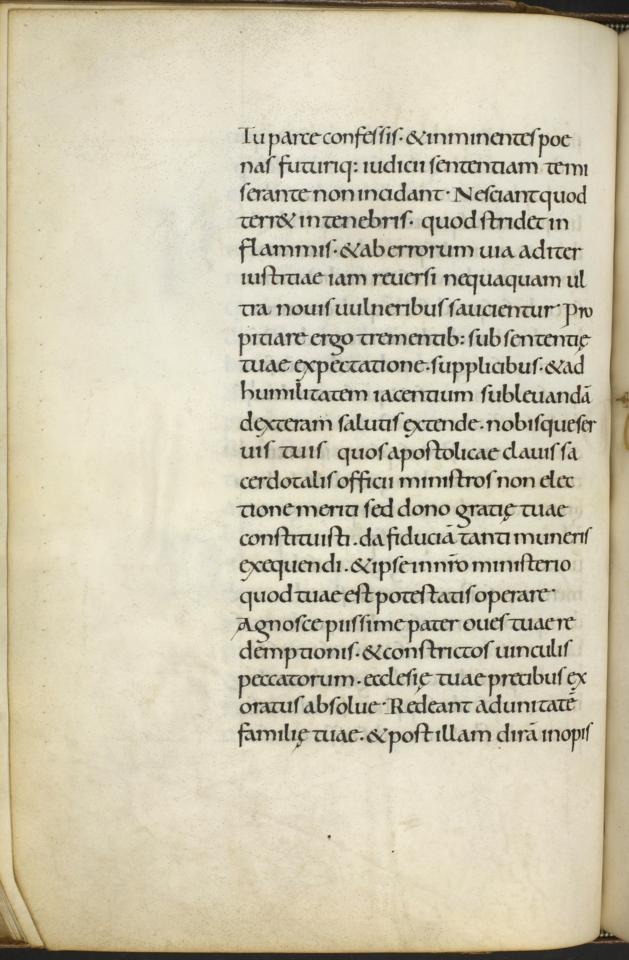 Tu parce confessis · & inminentes poe
nas futuriq: iudicii sententiam te mi
serante non incidant · Nesciant quod
terr& in tenebris · quod stridet in
flammis · & ab errorum uia ad iter
iustitiae iam reuersi nequaquam ul
tra nouis uulneribus saucientur · Pro
pitiare ergo trementib: sub sententię
tuae expectatione · supplicibus · & ad
humilitatem iacentium subleuandā
dexteram salutis extende · nobisque ser
uis tuis quos apostolicae clauis sa
cerdotalis officii ministros non elec
tione meriti sed dono gratię tuae
constituisti · da fiduciā tanti muneris
exequendi · & ipse in nr̄o ministerio
quod tuae est potestatis operare ·
Agnosce piissime pater oues tuae re
demptionis · & constrictos uinculis
peccatorum · ecclesię tuae precibus ex
oratus absolue · Redeant ad unitatē
familię tuae · & post illam dirā inopis